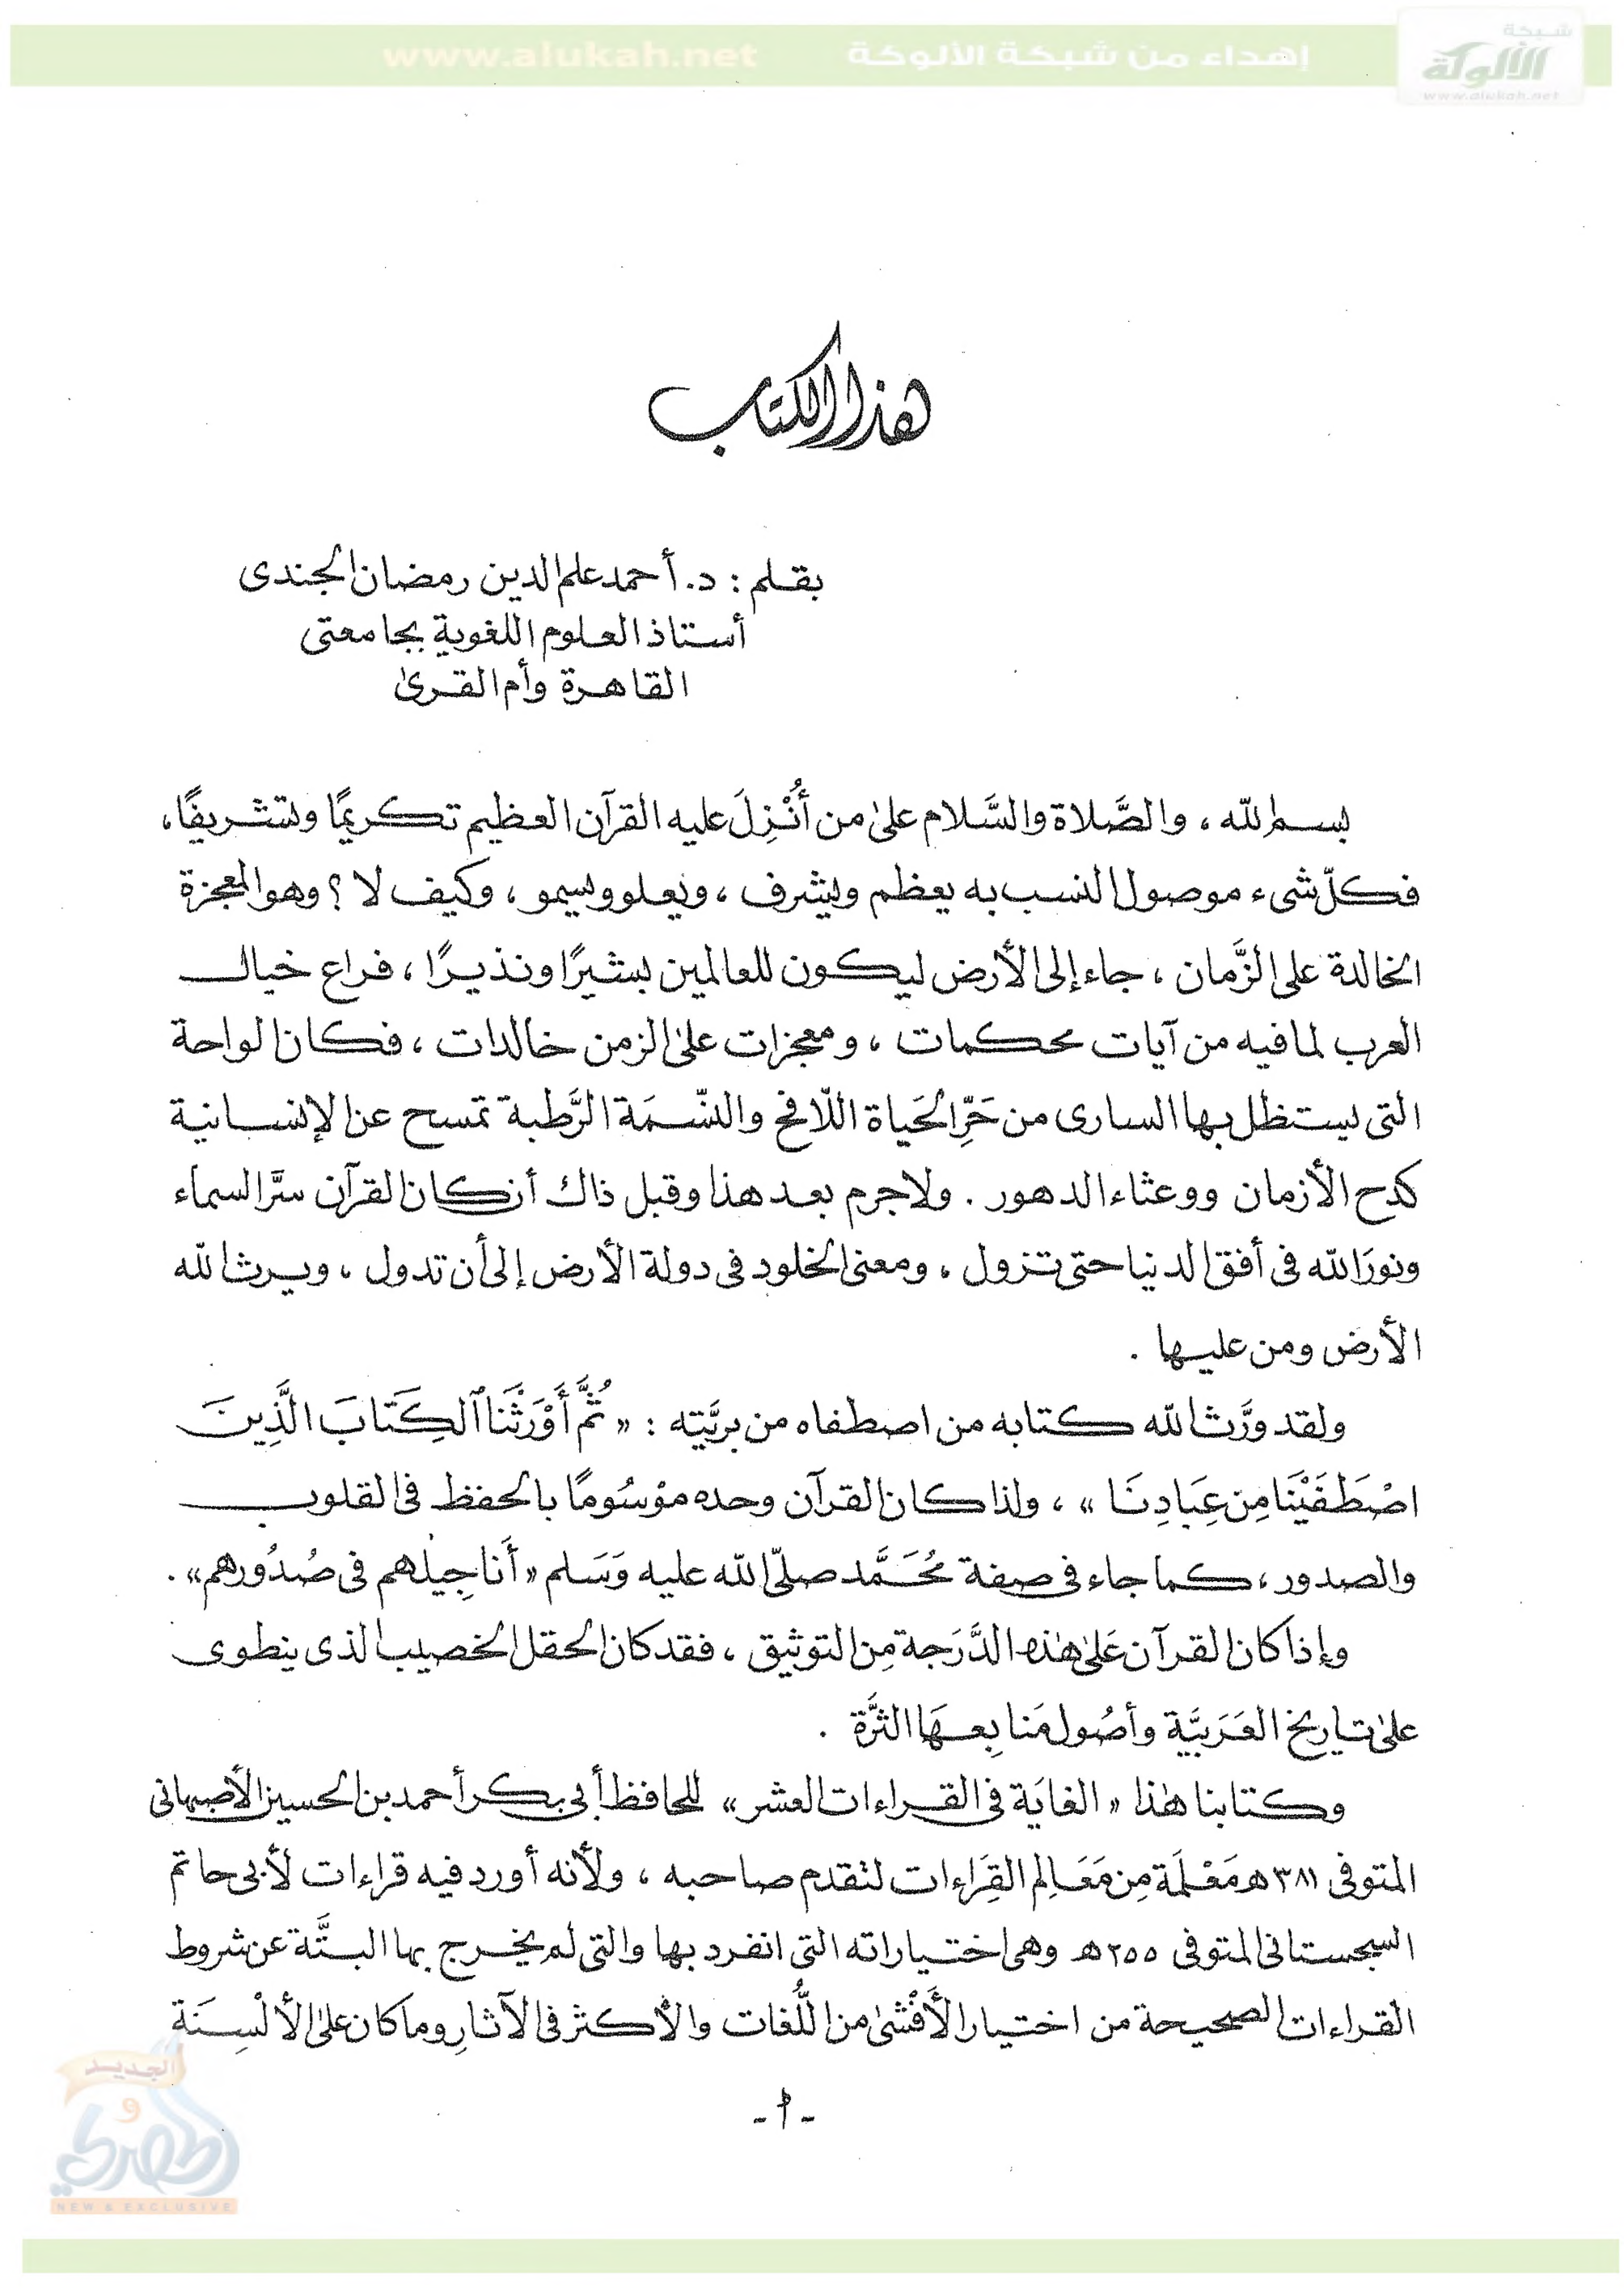 شبكة
الألوكة
www.alukah.net
إهداء من شبكة الألوكة www.alukah.net
هذا الكتاب
بقلم : د. أحمد علم الدين رمضان الجندى
أستاذ العلوم اللغوية بجامعتى
القاهرة وأم القرىٰ
بسم الله ، والصَّلاة والسَّلام علىٰ من أُنْزِلَ عليه القرآن العظيم تكريمًا وتشريفًا،
فكلّ شىء موصول النسب به يعظم ويشرف ، ويعلو ويسمو ، وكيف لا ؟ وهو المعجزة
الخالدة على الزَّمان ، جاء إلى الأرض ليكون للعالمين بشيرًا ونذيرًا ، فراع خيال
العرب لما فيه من آيات محكمات ، ومعجزات علىٰ الزمن خالدات ، فكان الواحة
التى يستظل بها السارى من حَرِّ الحَياة اللّافح والنّسَمَة الرَّطبة تمسح عن الإنسانية
كدح الأزمان ووعثاء الدهور . ولا جرم بعد هذا وقبل ذاك أن كان القرآن سرَّ السماء
ونورَ الله فى أفق الدنيا حتى تزول ، ومعنى الخلود فى دولة الأرض إلى أن تدول ، ويرث الله
الأرض ومن عليها .
ولقد ورَّث الله كتابه من اصطفاه من بريَّته : « ثُمَّ أَوْرَثْنَا ٱلكِتَابَ الَّذِينَ
اصْطَفَيْنَا مِن عِبَادِنَا » ، ولذا كان القرآن وحده مؤسُومًا بالحفظ فى القلوب
والصدور ، كما جاء فى صفة مُحَمَّد صلّى الله عليه وَسَلم « أَناجِيلهم فى صُدُورهم» .
وإذا كان القرآن عَلىٰ هٰذه الدَّرَجة مِن التوثيق ، فقد كان الحقل الخصيب الذى ينطوى
علىٰ تاريخ العَرَبيَّة وأصُول مَنابِعهَا الثرَّة .
وكتابنا هٰذا « الغايَة فى القراءات العشر » للحافظ أبى بكر أحمد بن الحسين الأصبهانى
المتوفى ٣٨١ ه مَعْلَمَة مِن مَعَالِم القِرَاءات لتقدم صاحبه ، ولأنه أورد فيه قراءات لأبى حاتم
السجستانى المتوفى ٢٥٥ ه وهى اختياراته التى انفرد بها والتى لم يخرج بها البتَّة عن شروط
القراءات الصحيحة من اختيار الأَفْشىٰ من اللُّغات والأكثر فى الآثارِ وما كان علىٰ الألْسِنَة
- أ -
الجديد
و
الحصري
NEW & EXCLUSIVE